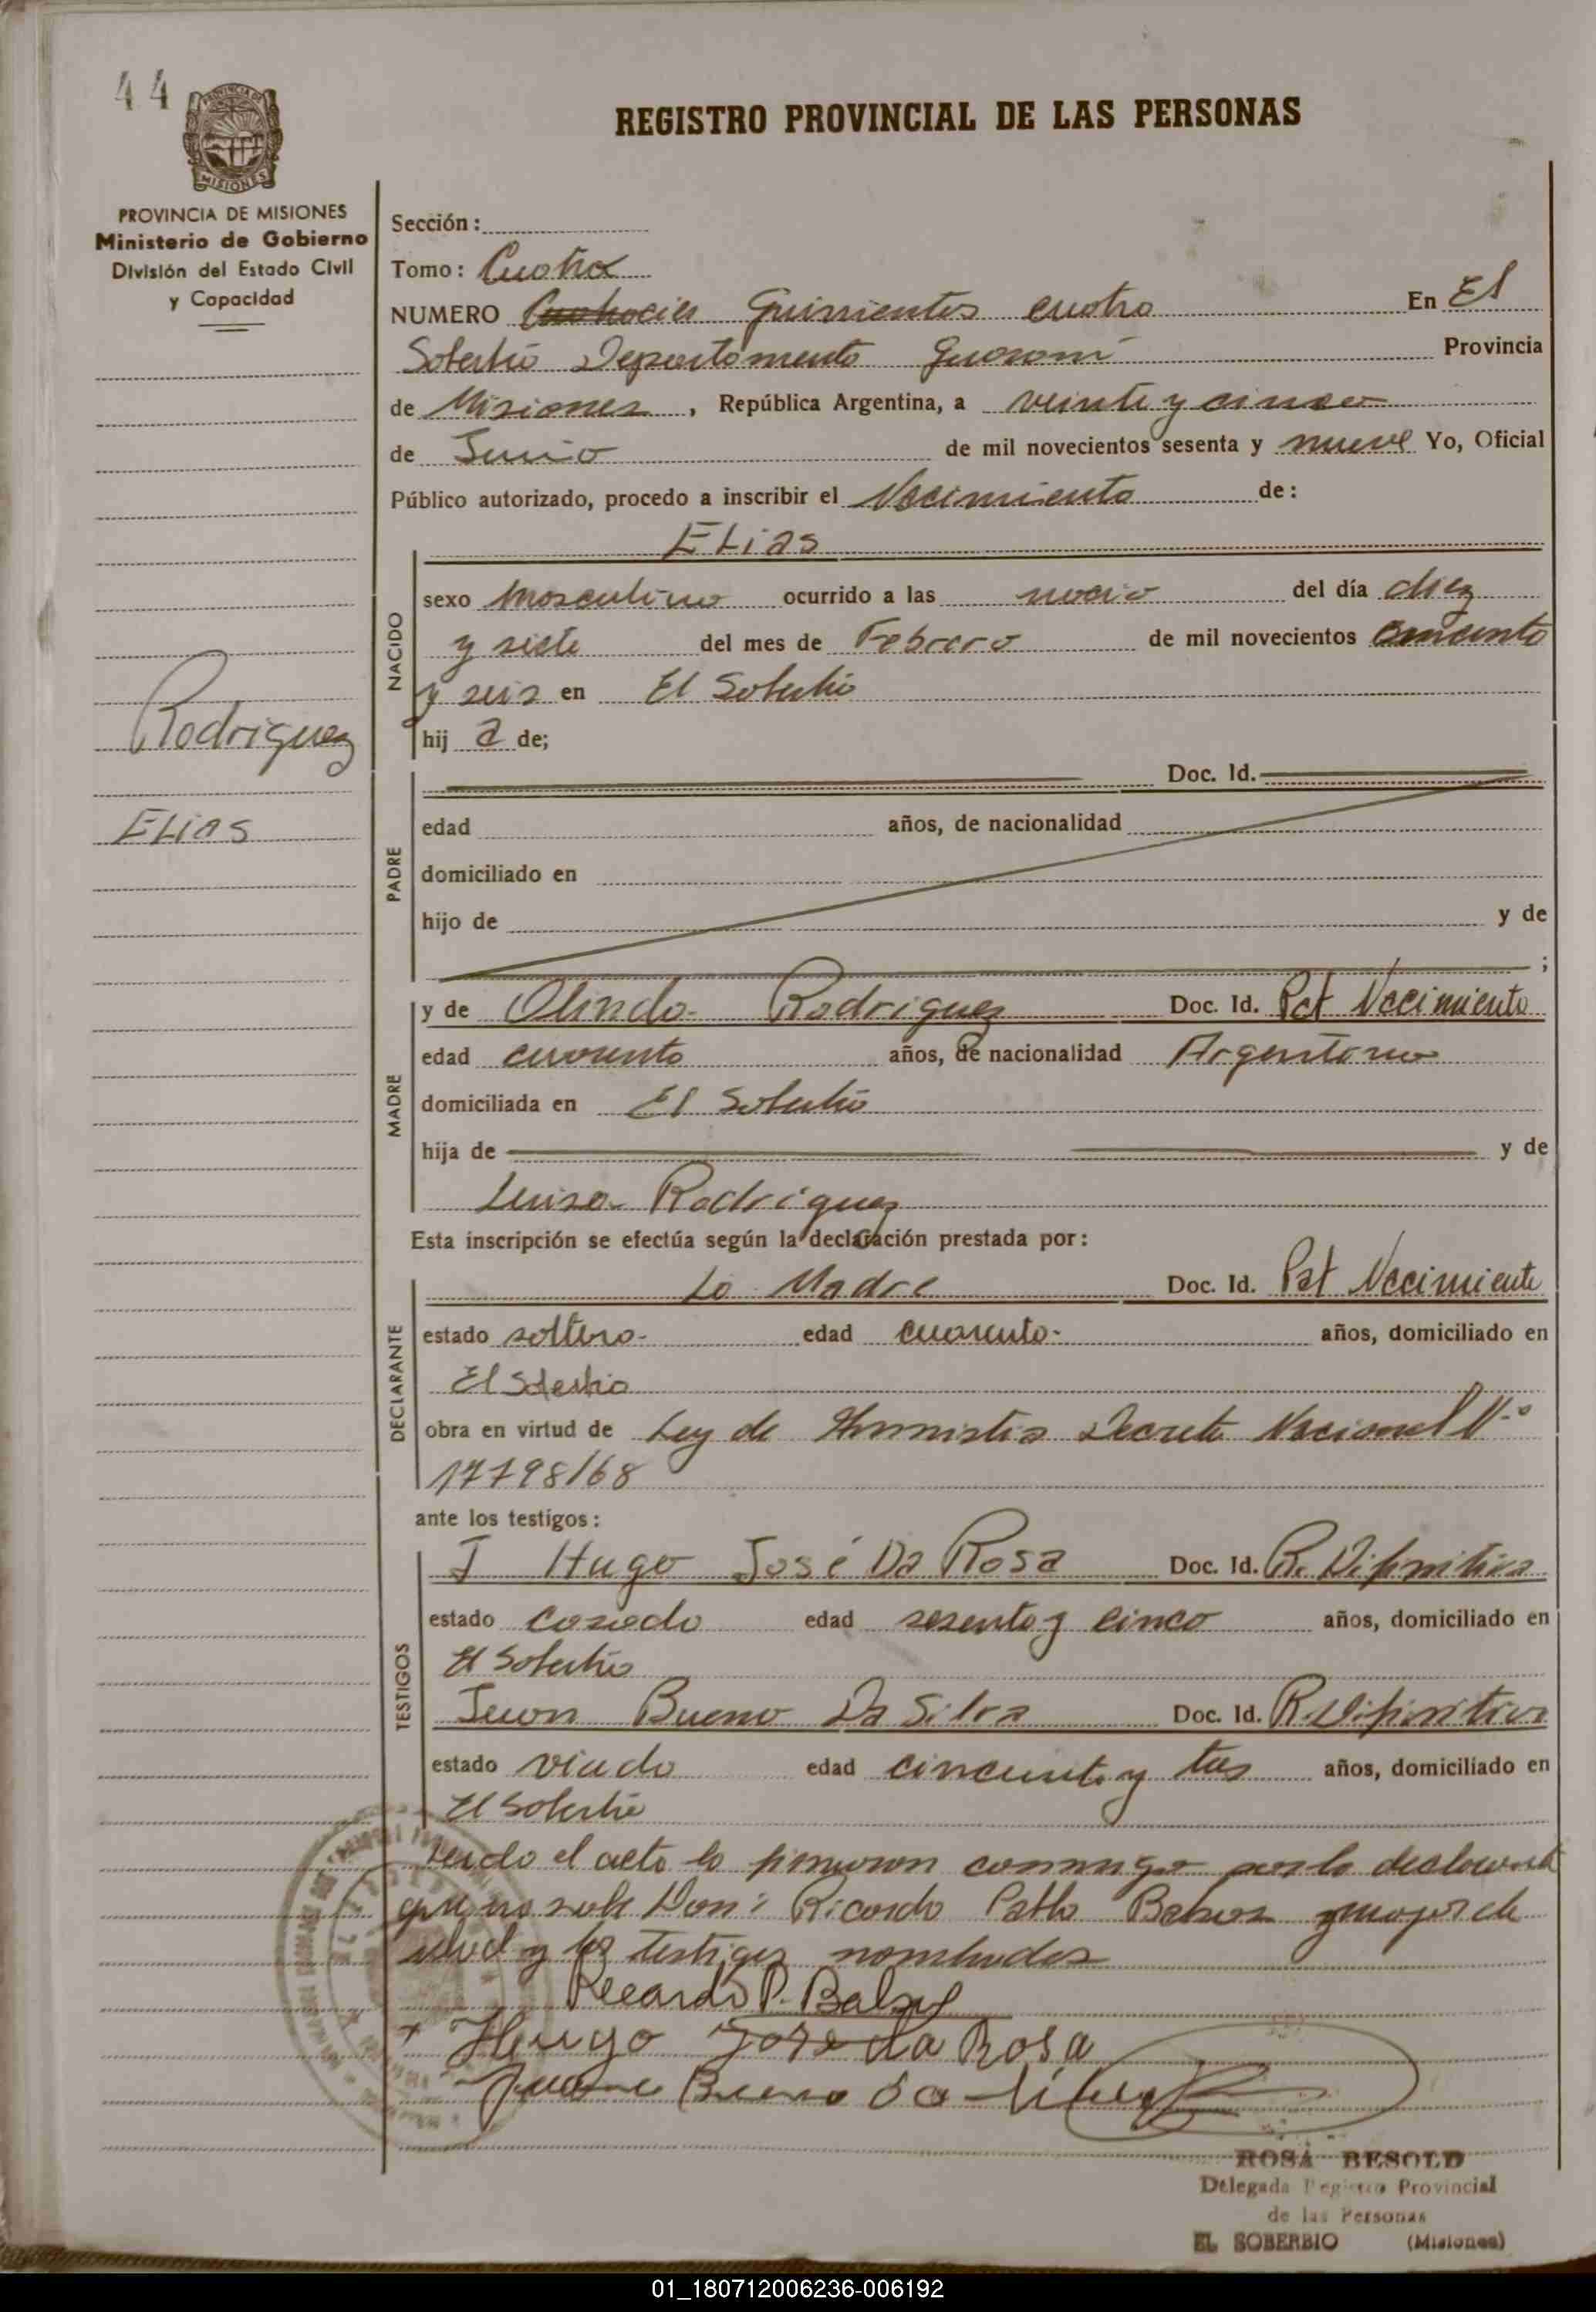 44
PROVINCIA DE MISIONES
PROVINCIA DE MISIONES
Ministerio de Gobierno
División del Estado Civil
y Capacidad
Rodriguez
Elias
REGISTRO PROVINCIAL DE LAS PERSONAS
Sección:
Tomo: Cuatro
NUMERO Quinientos cuatro En El
Soberbio Departamento Guarani Provincia
de Misiones, República Argentina, a veinte y cinco
de Junio de mil novecientos sesenta y nueve Yo, Oficial
Público autorizado, procedo a inscribir el Nacimiento de:
Elias
NACIDO
sexo Masculino ocurrido a las del día diez
y siete del mes de Febrero de mil novecientos cincuenta
y seis en El Soberbio
hij a de;
PADRE
Doc. Id.
edad años, de nacionalidad
domiciliado en
hijo de y de
;
MADRE
y de Olinda Rodriguez Doc. Id. Pat Nacimiento
edad cuarenta años, de nacionalidad Argentina
domiciliada en El Soberbio
hija de y de
Luisa Rodriguez
Esta inscripción se efectúa según la declaración prestada por:
DECLARANTE
La Madre Doc. Id. Pat Nacimiento
estado soltera edad cuarenta años, domiciliado en
El Soberbio
obra en virtud de Ley de Amnistia Decreto Nacional Nº
17798/68
ante los testigos:
TESTIGOS
Hugo José Da Rosa Doc. Id. R. Difinitiva
estado casado edad sesenta y cinco años, domiciliado en
El Soberbio
Juan Bueno Da Silva Doc. Id. R. Difinitiva
estado viudo edad cincuenta y tres años, domiciliado en
El Soberbio
Leido el acta la firmaron conmigo por la declarante
que no sabe Don: Ricardo Pablo y mayor de
edad y los testigos nombrados
Ricardo P.
Hugo Jose da Rosa
Bueno da Silva
ROSA BESOLD
Delegada Registro Provincial
de las Personas
EL SOBERBIO (Misiones)
01_180712006236-006192